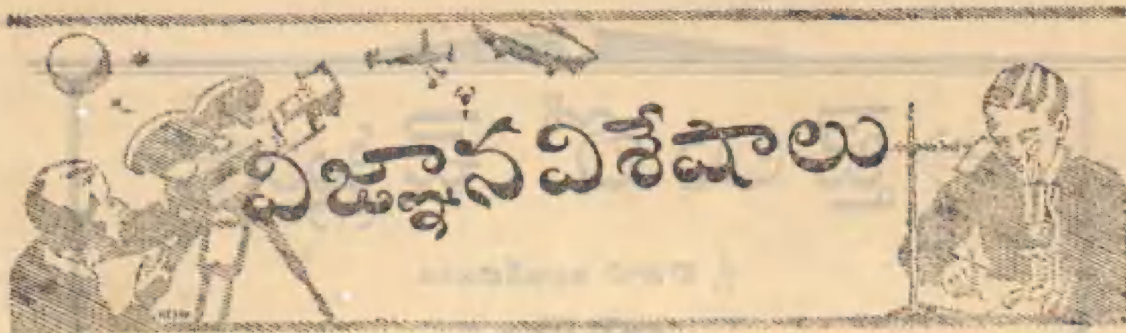 విజ్ఞానవిశేషాలు